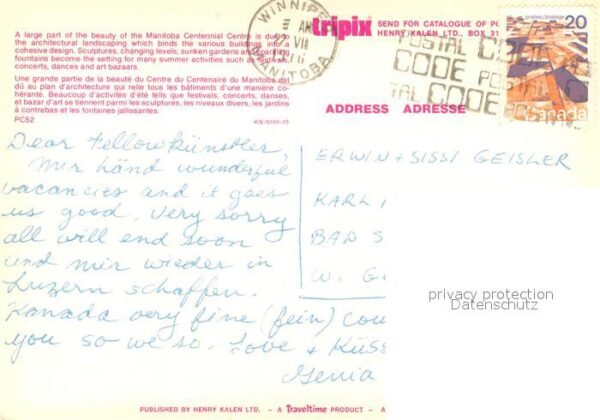 A large part of the beauty of the Manitoba Centennial Centre is due to
the architectural landscaping which binds the various buildings into a
cohesive design. Sculptures, changing levels, sunken gardens and leaping
fountains become the setting for many summer activities such as festivals,
concerts, dances and art bazaars.
Une grande partie de la beauté du Centre du Centenaire du Manitoba est
dû au plan d'architecture qui relie tous les bâtiments d'une manière co-
hérante. Beaucoup d'activités d'été tells que festivals, concerts, danses,
et bazar d'art se tiennent parmi les sculptures, les niveaux divers, les jardins
à contrebas et les fontaines jallissantes.
PC52
KS-5109-15
WINNIPEG
MANITOBA
AM
VII
tripix
SEND FOR CATALOGUE OF PO
HENRY KALEN LTD., BOX 31
POSTAL CODE
CODE POSTAL
TAL CODE
postes/postage
20
Canada
ADDRESS ADRESSE
Dear Fellowkünstler,
Mir händ wunderful
vacancies and it goes
us good. Very sorry
all will end soon
und mir wieder in
Luzern schaffen.
Kanada very fine (fein) cou
you so we so. Love + Küss
Genia
ERWIN + SISSI GEISLER
KARL
BAD S
W. G
privacy protection
Datenschutz
PUBLISHED BY HENRY KALEN LTD. – A Traveltime PRODUCT – A